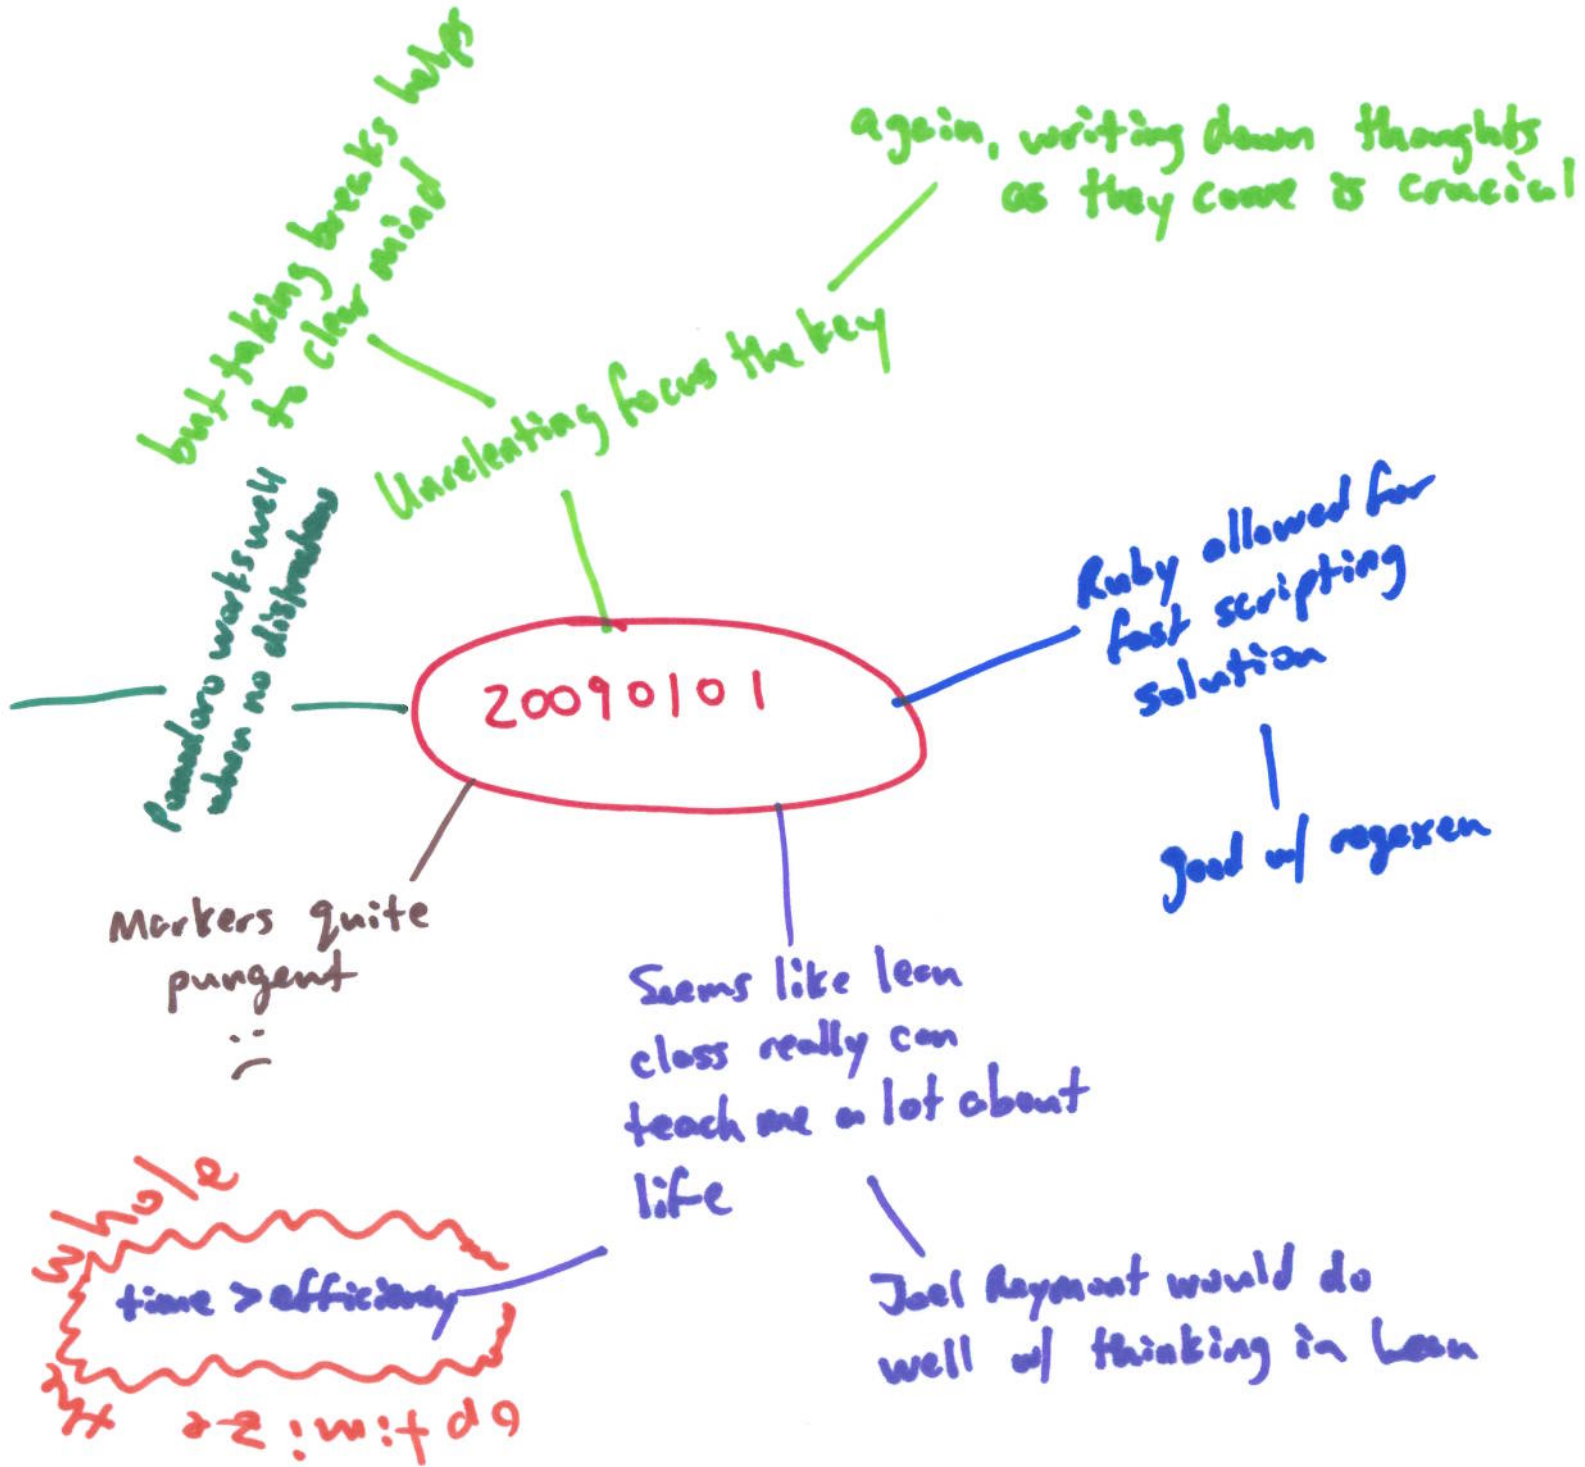 but taking breaks helps
to clear mind
again, writing down thoughts
as they come is crucial
Unrelenting focus the key
Pomodoro works well
when no distractions
20090101
Ruby allowed for
fast scripting
solution
good w/ regexen
Markers quite
pungent
:(
Seems like lean
class really can
teach me a lot about
life
time > efficiency
Optimize the whole
Joel Raymont would do
well w/ thinking in Lean